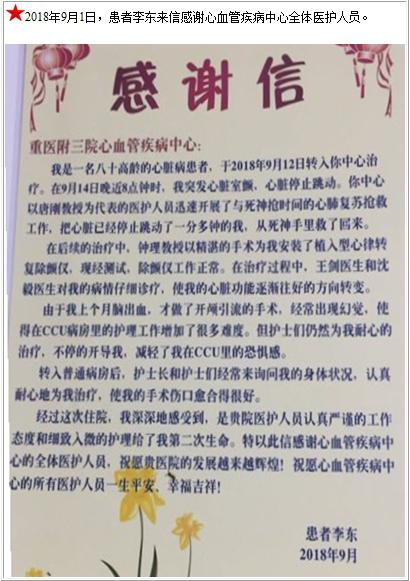 ★2018年9月1日，患者李东来信感谢心血管疾病中心全体医护人员。
感谢信
重医附三院心血管疾病中心:
我是一名八十高龄的心脏病患者，于2018年9月12日转入你中心治
疗。在9月14日晚近8点钟时，我突发心脏室颤，心脏停止跳动。你中心
以唐刚教授为代表的医护人员迅速开展了与死神抢时间的心肺复苏抢救
工作，把心脏已经停止跳动了一分多钟的我，从死神手里救了回来。
在后续的治疗中，钟理教授以精湛的手术为我安装了植入型心律转
复除颤仪，现经测试，除颤仪工作正常。在治疗过程中，王剑医生和沈
毅医生对我的病情仔细诊疗，使我的心脏功能逐渐往好的方向转变。
由于我上个月脑出血，才做了开颅引流的手术，经常出现幻觉，使
得在CCU病房里的护理工作增加了很多难度。但护士们仍然为我耐心的
治疗，不停的开导我，减轻了我在CCU里的恐惧感。
转入普通病房后，护士长和护士们经常来询问我的身体状况，认真
耐心地为我治疗，使我的手术伤口愈合得很好。
经过这次住院，我深深地感受到，是贵院医护人员认真严谨的工作
态度和细致入微的护理给了我第二次生命。特以此信感谢心血管疾病中
心的全体医护人员，祝愿贵医院的发展越来越辉煌！祝愿心血管疾病中
心的所有医护人员一生平安、幸福吉祥!
患者李东
2018年9月